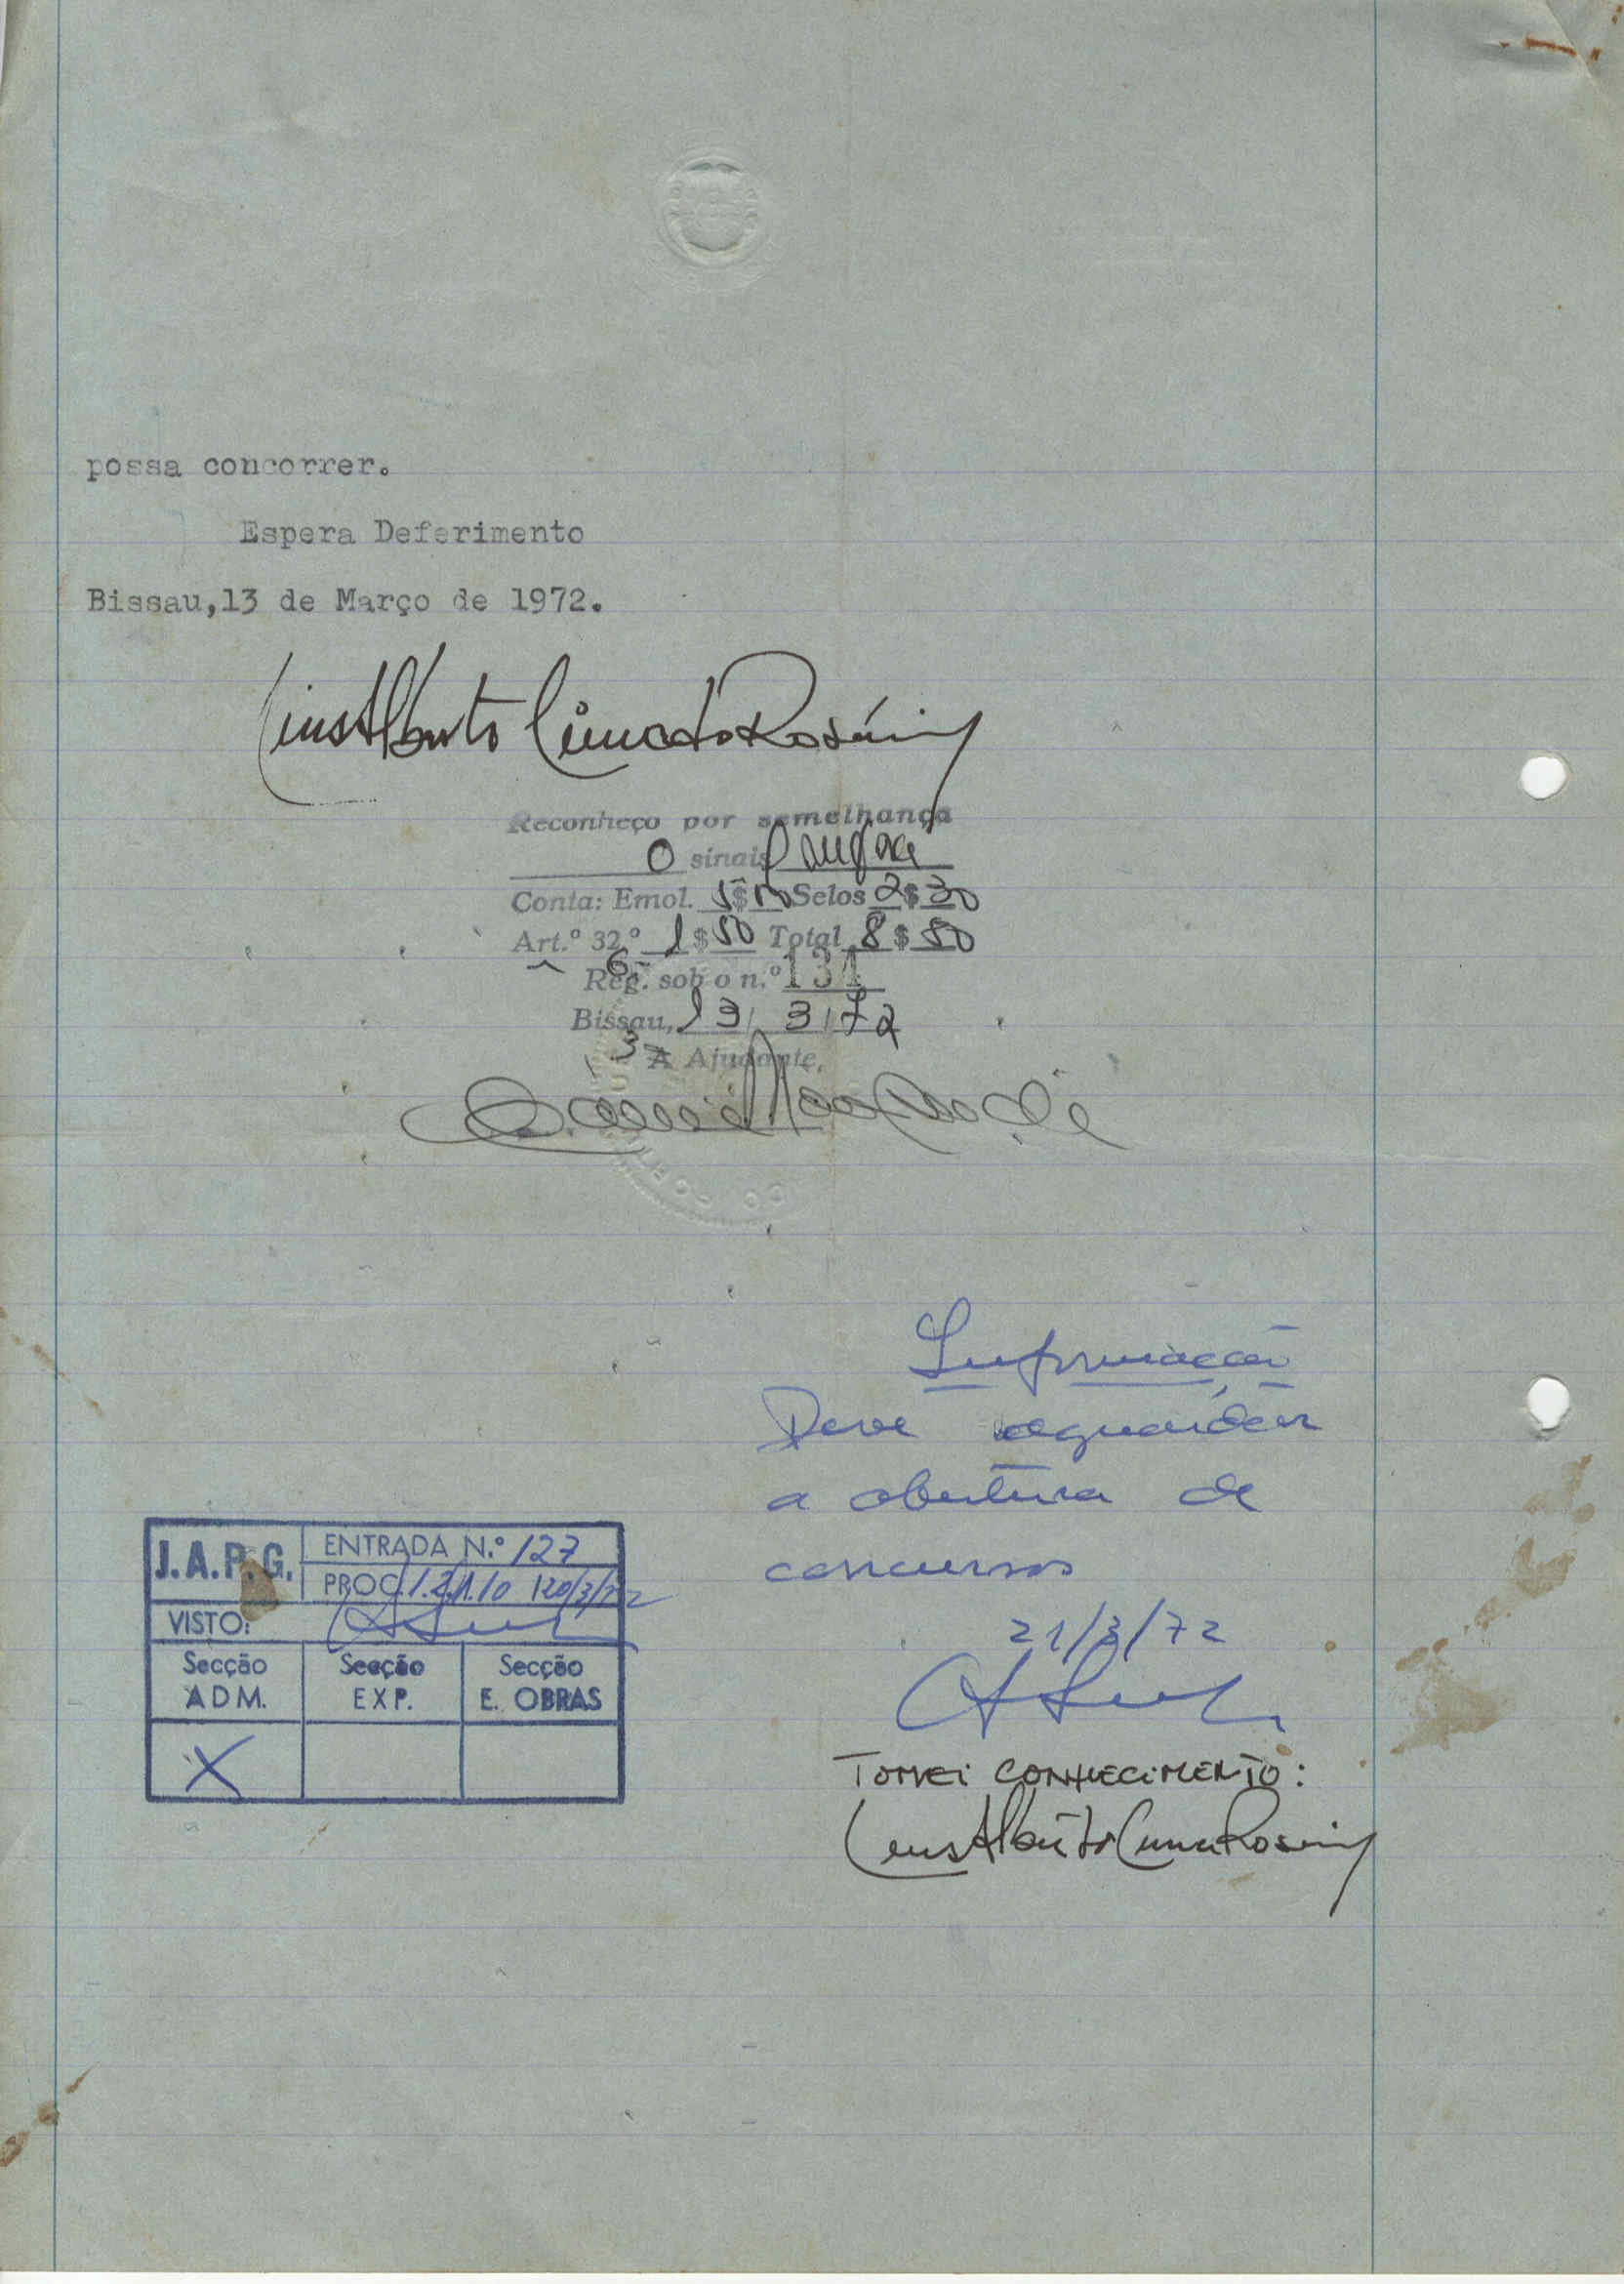 possa concorrer.
Espera Deferimento
Bissau,13 de Março de 1972.
Luis Alberto Lima do Rosário
Reconheço por semelhança
O sinais
Conta: Emol. $ Selos 2$30
Art.º 32.º 1$50 Total 8$80
Reg. sob o n.º 134
Bissau, 13/ 3/72
A Ajudante,
Informação
Deve aguardar
a abertura de
concursos
21/3/72
Tomei conhecimento:
Luis Alberto Lima Rosário
J.A.P.G. ENTRADA N.º 127
PROC. 1.2.1.10 20/3/72
VISTO:
Secção ADM.
Secção EXP.
Secção E. OBRAS
X